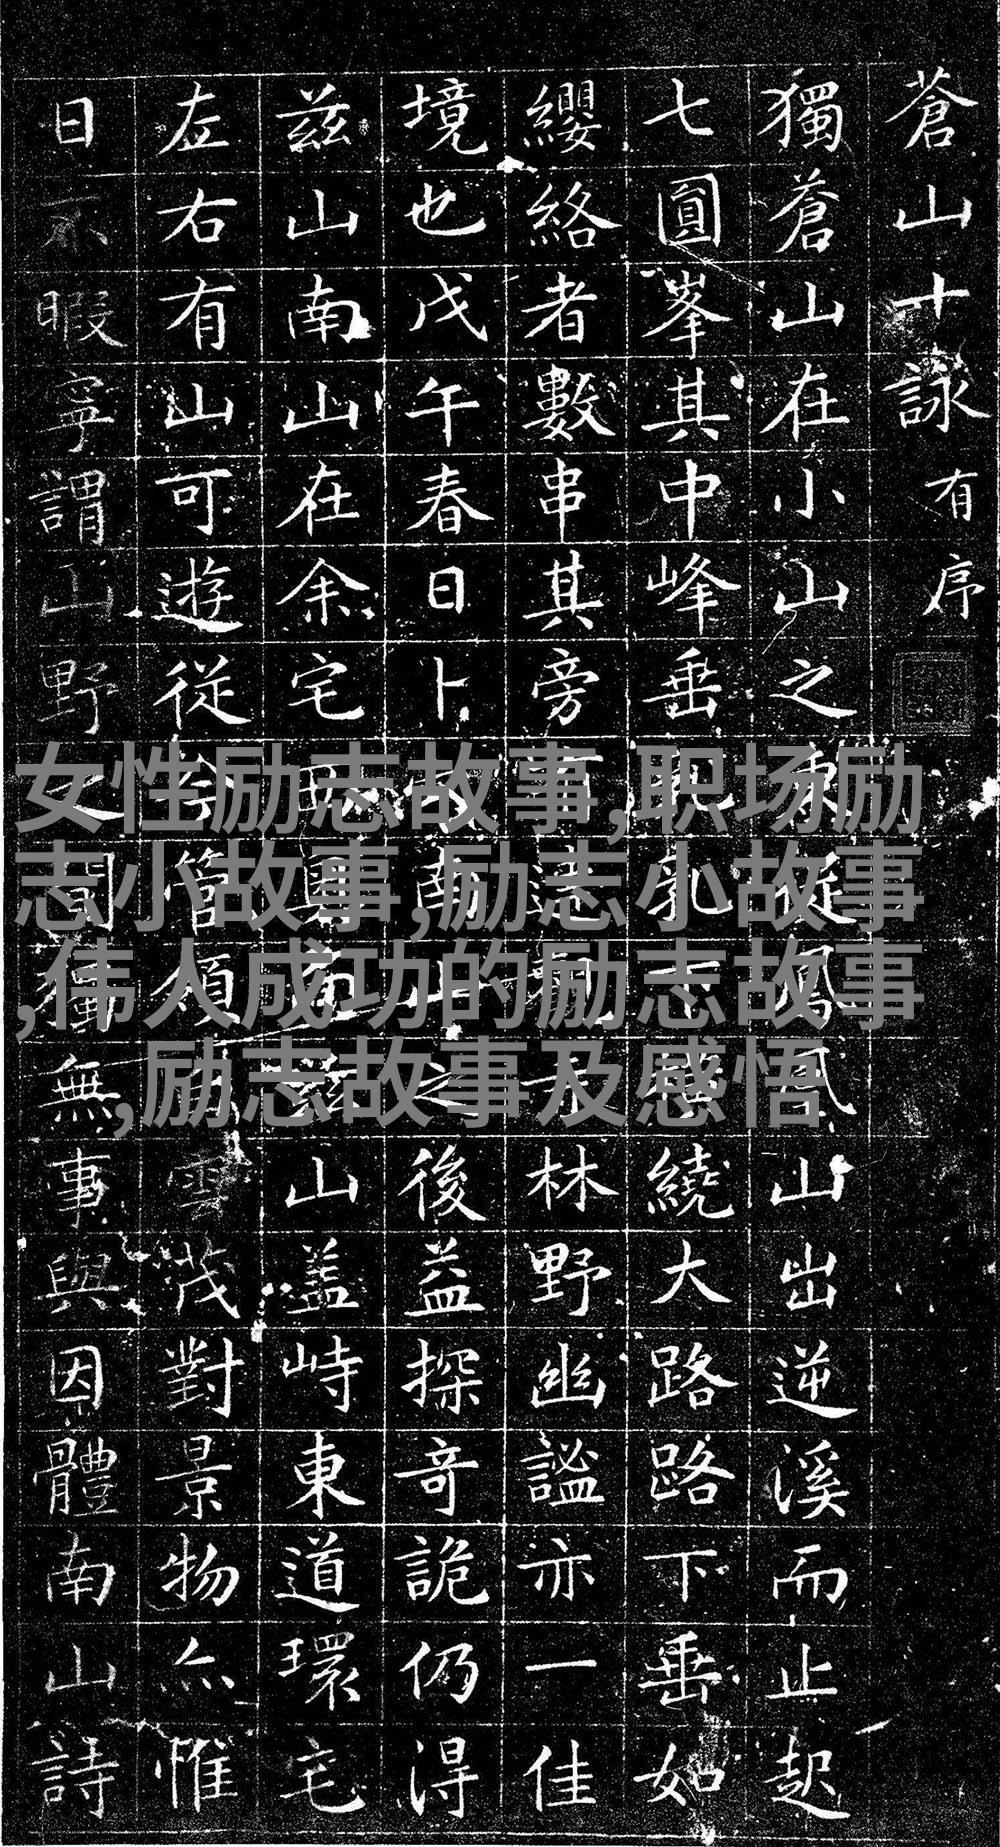 蒼山十詠 有序
獨蒼山在小山之東從鳳凰山出逆溪而止起
七圓峯其中峰垂乳下繞大路路下垂如
纓絡者數串其旁林野幽謐亦一佳
境也戊午春日卜南山之後益探奇詭仍得
茲山南山在余宅茲山盖峙東道環宅
左右有山可遊從管領雲茂對景物亦惟
日不暇寧謂山野之間獨無事與因體南山詩
女性励志故事,职场励
志小故事,励志小故事
,伟人成功的励志故事
,励志故事及感悟